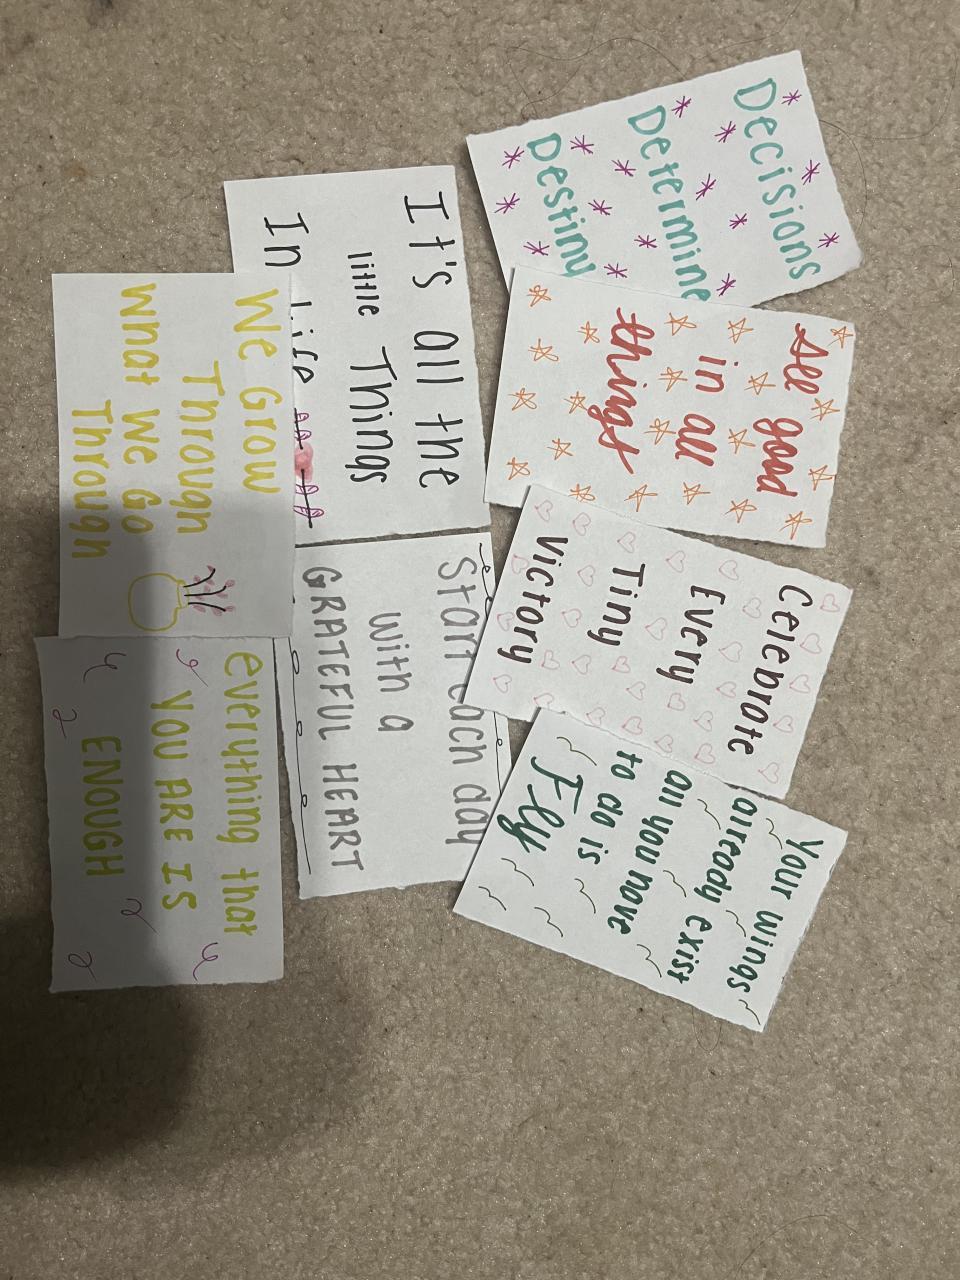 Decisions
Determine
Destiny
see good
in all
things
Celebrate
Every
Tiny
Victory
Your wings
already exist
all you have
to do is
Fly
It's all the
little Things
In Life
Start each day
with a
GRATEFUL HEART
We Grow
Through
What We Go
Through
everything that
YOU ARE IS
ENOUGH